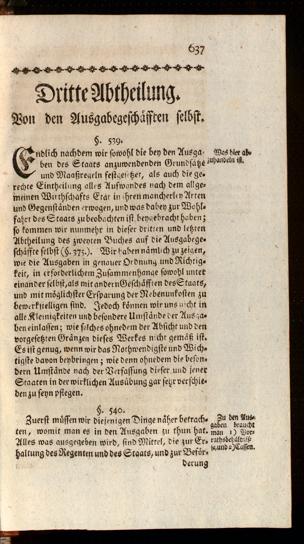 637
Dritte Abtheilung.
Von den Ausgabegeschäfften selbst.
§. 539.
Endlich nachdem wir sowohl die bey den Ausga-
ben des Staats anzuwendenden Grundsätze
und Maaßregeln festgesetzet, als auch die ge-
rechte Eintheilung alles Aufwandes nach dem allge-
meinen Wirthschafts Etat in ihren mancherley Arten
und Gegenständen erwogen, und was dabey zur Wohl-
fahrt des Staats zu beobachten ist beygebracht haben;
so kommen wir nunmehr in dieser dritten und letzten
Abtheilung des zweyten Buches auf die Ausgabege-
schäffte selbst (§. 375.). Wir haben nämlich zu zeigen,
wie die Ausgaben in genauer Ordnung und Richtig-
keit, in erforderlichem Zusammenhange sowohl unter
einander selbst, als mit andern Geschäfften des Staats,
und mit möglichster Ersparung der Nebenunkosten zu
bewerkstelligen sind. Jedoch können wir uns nicht in
alle Kleinigkeiten und besondere Umstände der Ausga-
ben einlassen; wie solches ohnedem der Absicht und den
vorgesetzten Gränzen dieses Werkes nicht gemäß ist.
Es ist genug, wenn wir das Nothwendigste und Wich-
tigste davon beybringen; wie denn ohnedem die beson-
dern Umstände nach der Verfassung dieser und jener
Staaten in der wirklichen Ausübung gar sehr verschie-
den zu seyn pflegen.
Was hier ab-
zuhandeln ist.
§. 540.
Zuerst müssen wir diejenigen Dinge näher betrach-
ten, womit man es in den Ausgaben zu thun hat.
Alles was ausgegeben wird, sind Mittel, die zur Er-
haltung des Regenten und des Staats, und zur Beför-
derung
Zu den Aus-
gaben braucht
man 1) Vor-
rathsbehältnis-
se, und 2) Cassen.